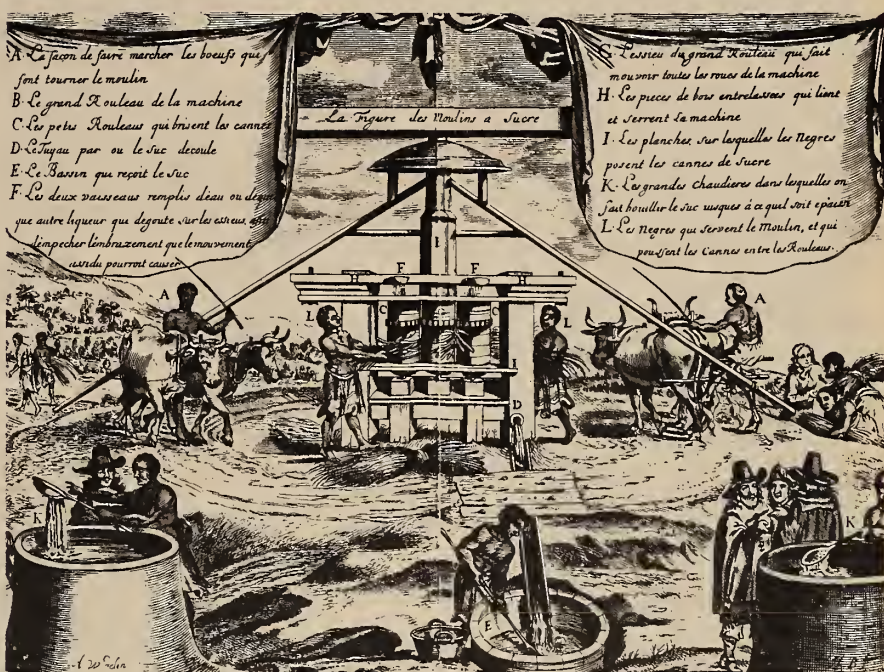 A. La façon de faire marcher les boeufs qui
font tourner le moulin
B. Le grand Rouleau de la machine
C. Les petis Rouleaus qui brisent les cannes
D. Le Tuyau par ou le suc decoule
E. Le Bassin qui reçoit le suc
F. Les deux vaisseaus remplis d'eau ou de
que autre liqueur qui degoute sur les essieus,
d'empecher l'embrazement que le mouvement
assidu pourroit causer
La Figure des Moulins a Sucre
G. L'essieu du grand Rouleau qui fait
mouvoir toutes les roues de la machine
H. Les pieces de bois entrelassees qui lient
et serrent la machine
I. Les planches, sur lesquelles les Negres
posent les cannes de sucre
K. Les grandes chaudieres dans lesquelles on
fait bouillir le suc jusques à ce quil soit epaissi
L. Les Negres qui servent le Moulin, et qui
poussent les Cannes entre les Rouleaus.
I
F F
H H
A L C C L A
I
D
K K
E